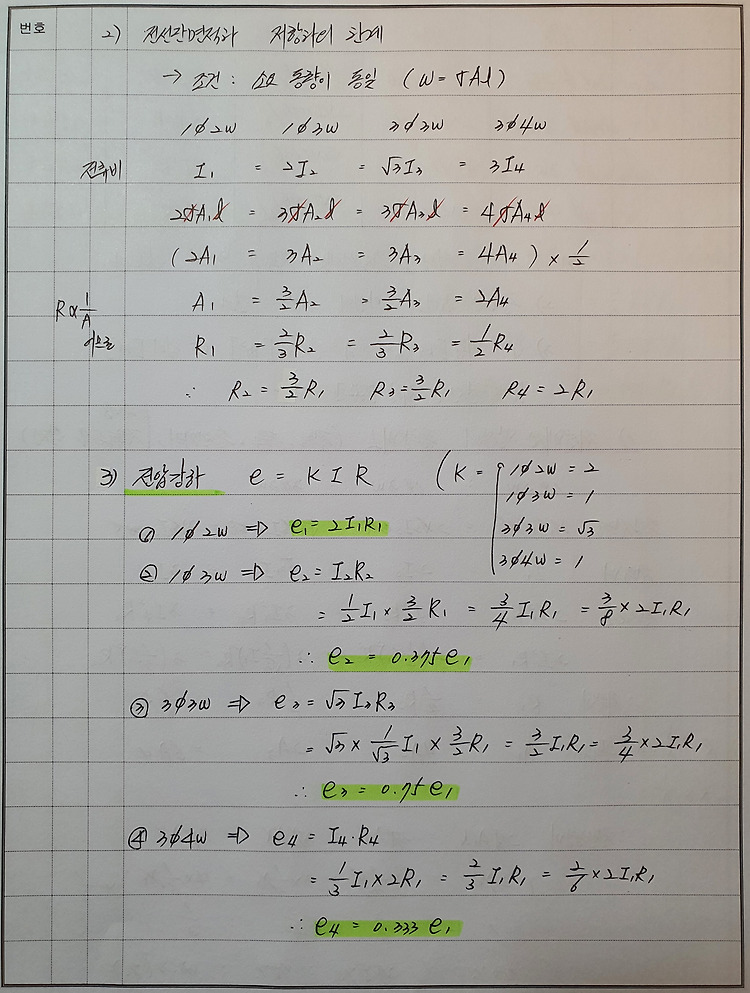 번호
2) 전선단면적과 저항과의 관계
→ 조건 : 소요 동량이 동일 ( W = σAl )
1∅2w 1∅3w 3∅3w 3∅4w
전류비 I₁ = 2I₂ = √3I₃ = 3I₄
2σA₁l = 3σA₂l = 3σA₃l = 4σA₄l
( 2A₁ = 3A₂ = 3A₃ = 4A₄ ) × 1/2
A₁ = 3/2 A₂ = 3/2 A₃ = 2A₄
R ∝ 1/A 이므로 R₁ = 2/3 R₂ = 2/3 R₃ = 1/2 R₄
∴ R₂ = 3/2 R₁ R₃ = 3/2 R₁ R₄ = 2R₁
3) 전압강하 e = K I R ( K = 1∅2w = 2
1∅3w = 1
3∅3w = √3
3∅4w = 1
① 1∅2w ⇒ e₁ = 2I₁R₁
② 1∅3w ⇒ e₂ = I₂R₂
= 1/2 I₁ × 3/2 R₁ = 3/4 I₁R₁ = 3/8 × 2I₁R₁
∴ e₂ = 0.375e₁
③ 3∅3w ⇒ e₃ = √3 I₃R₃
= √3 × 1/√3 I₁ × 3/2 R₁ = 3/2 I₁R₁ = 3/4 × 2I₁R₁
∴ e₃ = 0.75e₁
④ 3∅4w ⇒ e₄ = I₄·R₄
= 1/3 I₁ × 2R₁ = 2/3 I₁R₁ = 2/6 × 2I₁R₁
∴ e₄ = 0.333 e₁